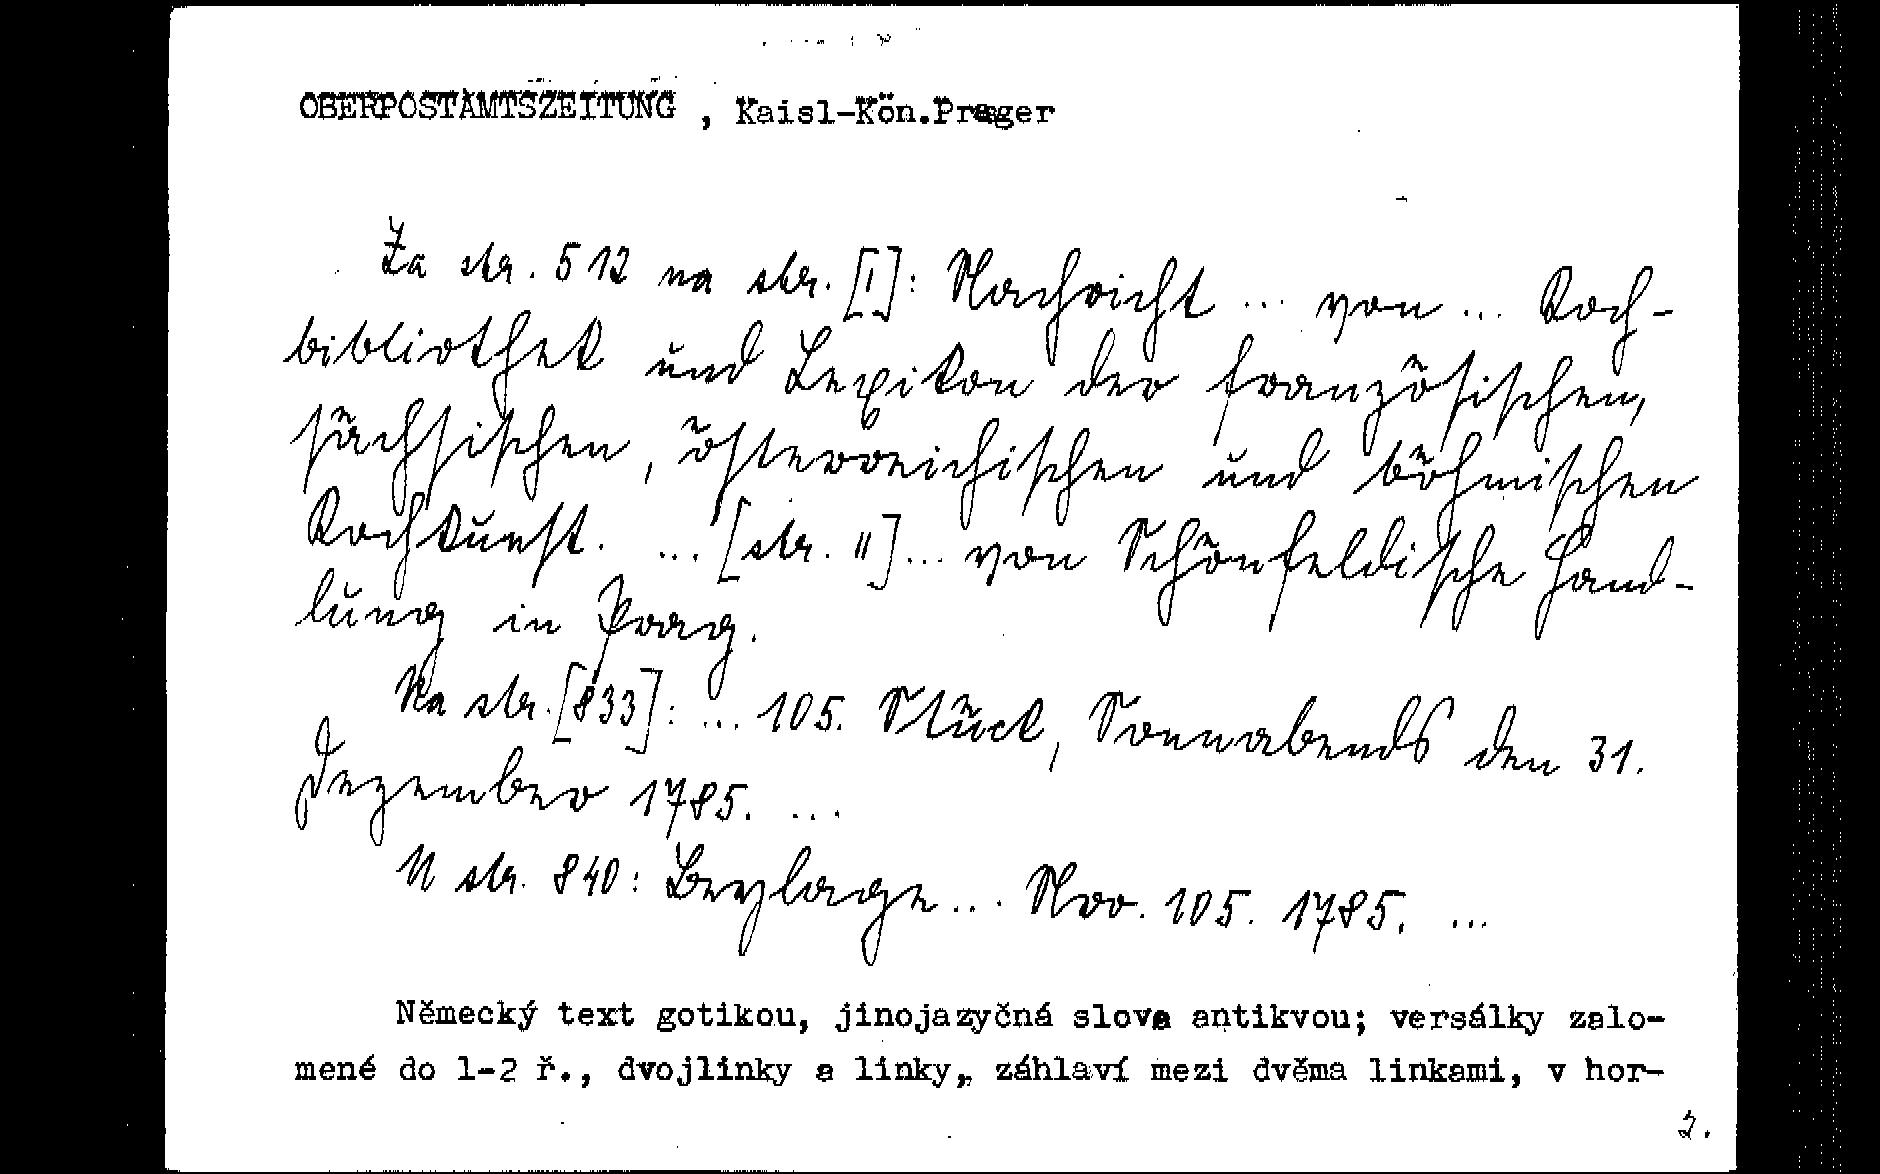 OBERPOSTAMTSZEITUNG , Kaisl-Kön.Prager
Za str. 512 na str. [I]: Nachricht ... von ... Koch-
bibliothek und Lexikon der französischen,
sächsischen, österreichischen und böhmischen
Kochkunst. ... [str. II] ... von Schönfeldische Hand-
lung in Prag.
Na str. [833]: ... 105. Stück, Sonnabends den 31.
Dezember 1785. ...
N str. 840: Beylage ... Nro. 105. 1785. ...
Německý text gotikou, jinojazyčná slova antikvou; versálky zalo-
mené do 1-2 ř., dvojlinky a linky,, záhlaví mezi dvěma linkami, v hor-
2.